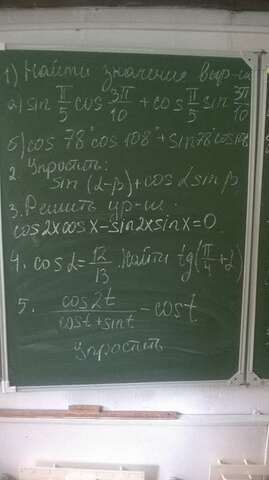 1) Найти значение выр-ия
а) sin π/5 cos 3π/10 + cos π/5 sin 3π/10
б) cos 78° cos 108° + sin 78° cos 108
2 Упростить:
sin (α-β) + cos α sin β
3. Решить ур-ие.
cos2x cosx - sin2x sinx = 0
4. cos α = √2/13. Найти tg(π/4 + α)
5. cos2t / cost + sint - cost
упростить